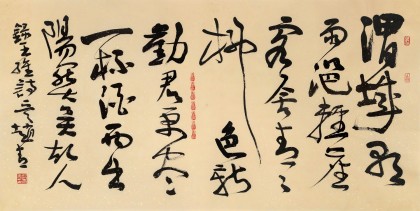 渭城朝
雨浥輕塵
客舍青々
柳色新
勸君更盡
一杯酒西出
陽關無故人
錄王維詩